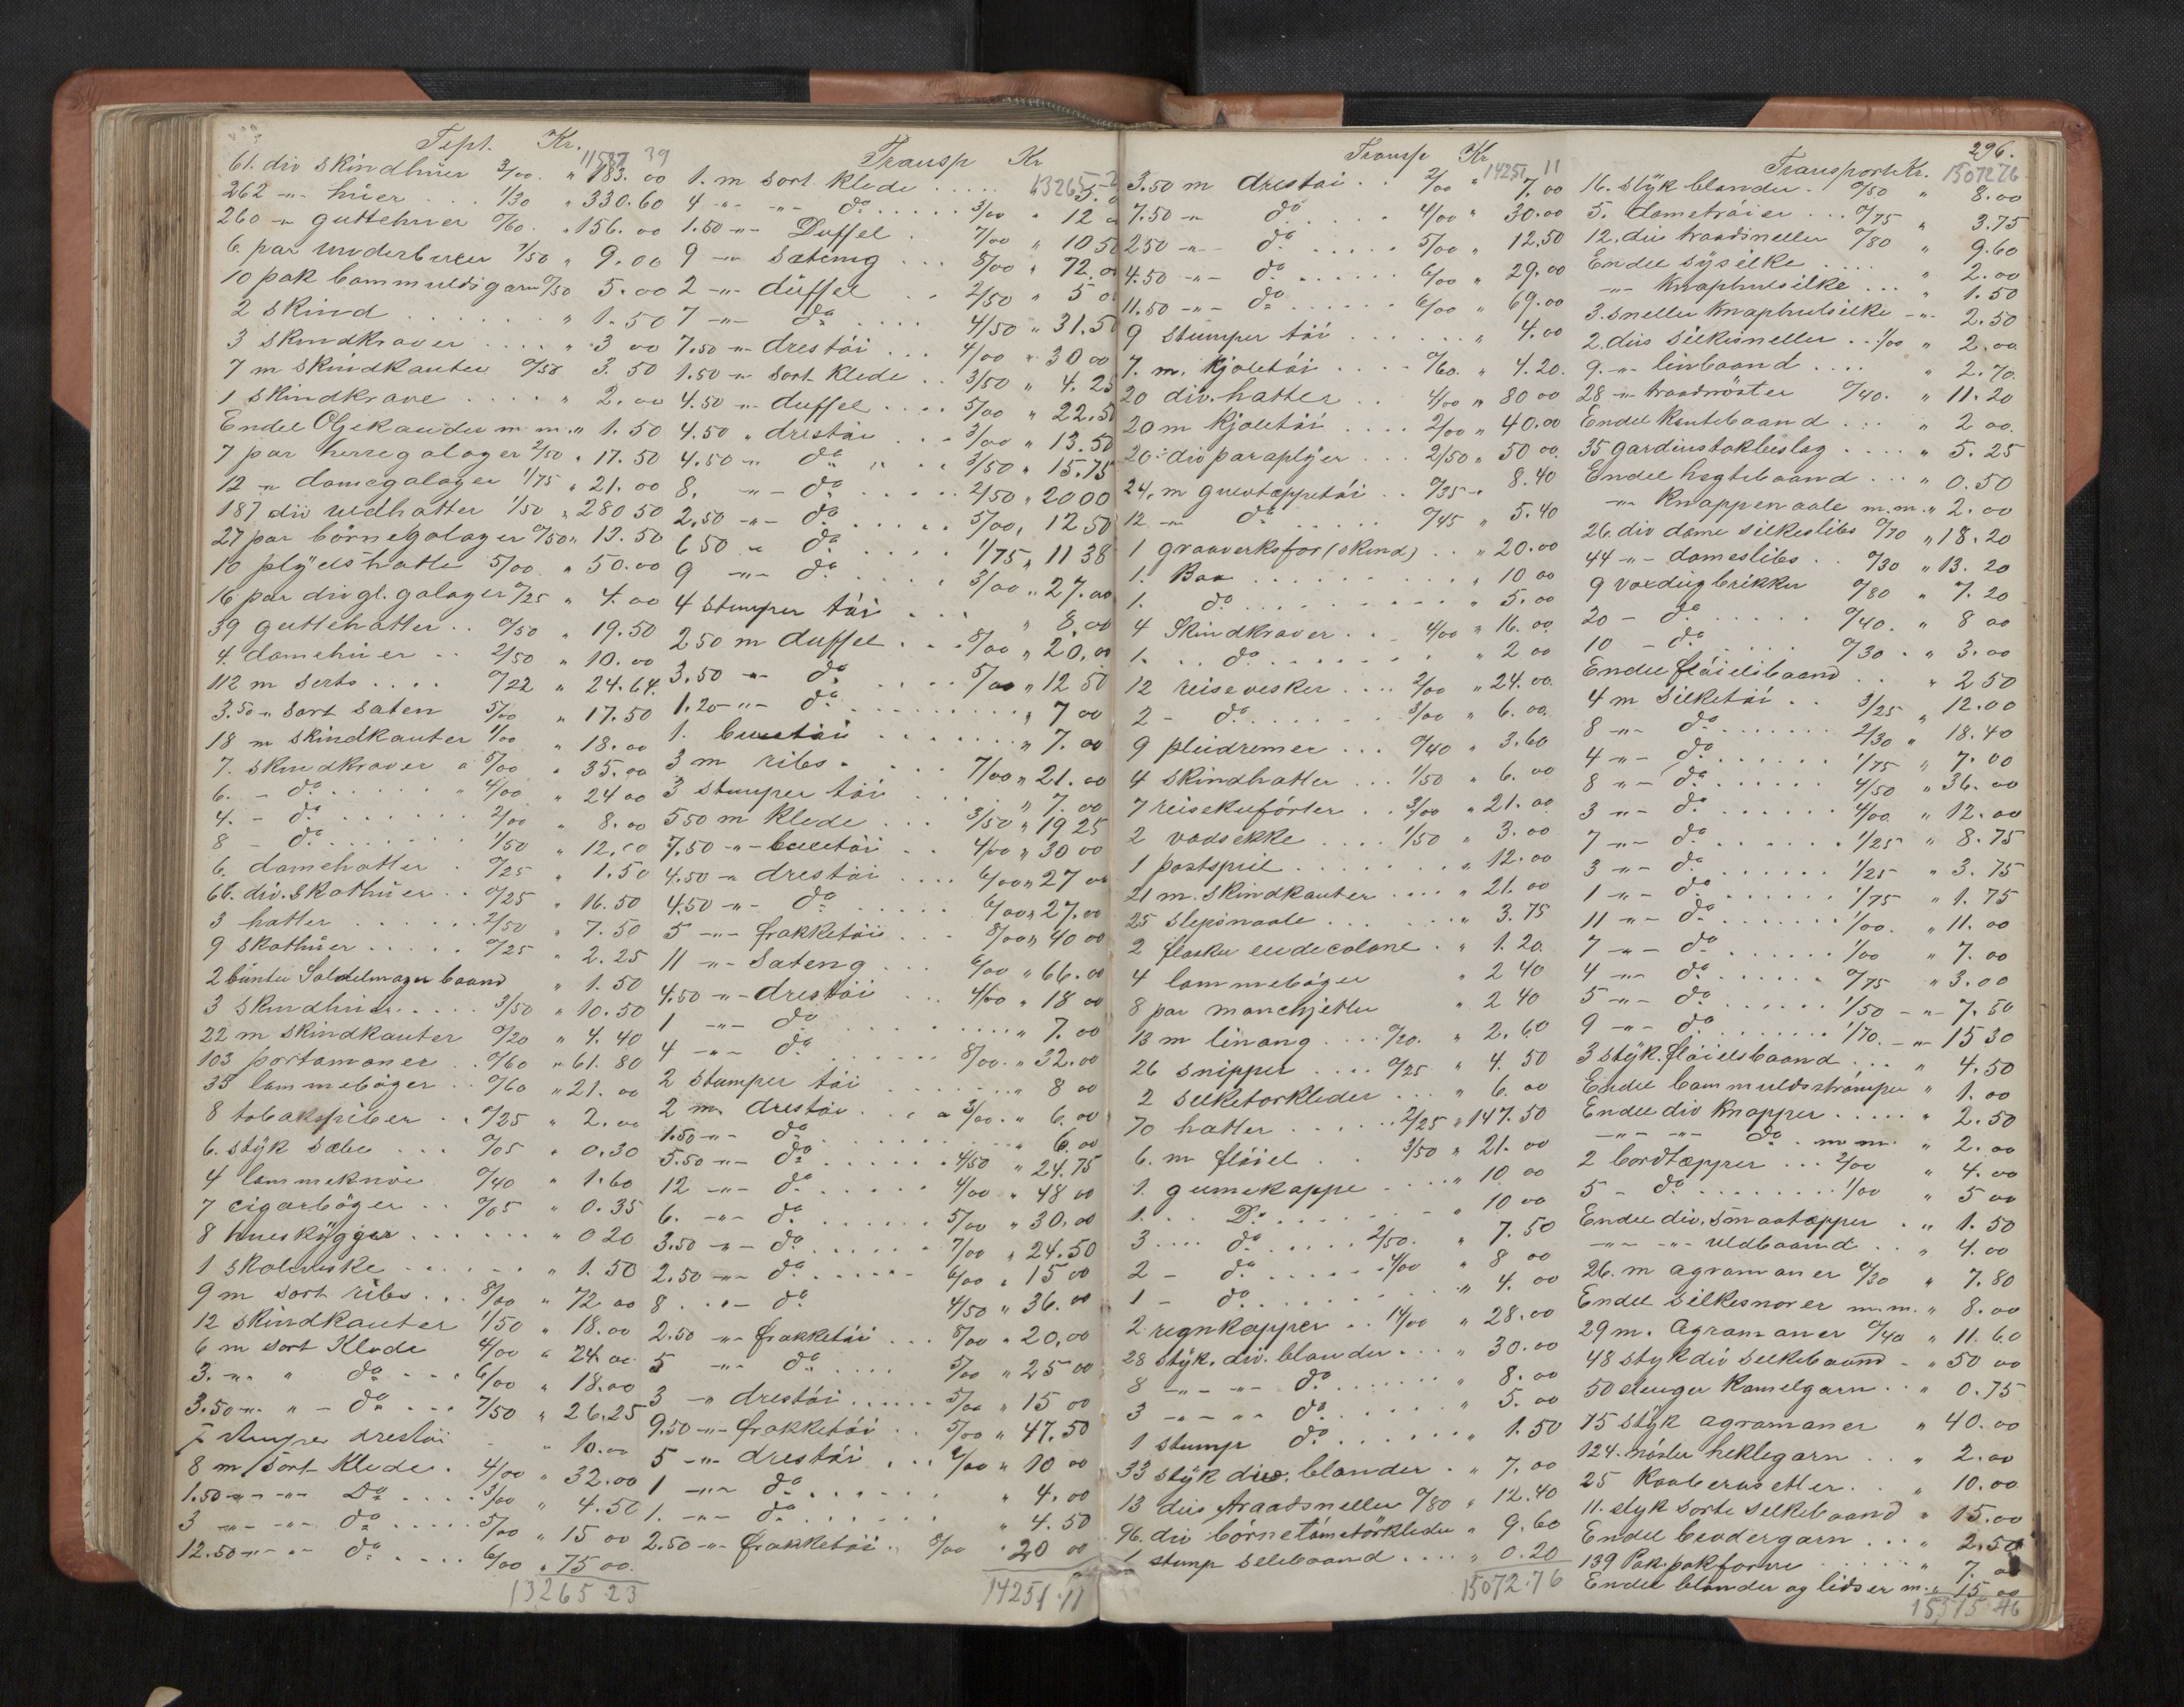 Tspt. Kr.
11587 39
61. div skindhuer 3/00. " 183. 00
262 -"- huer . . . 1/30 " 330.60
260 -" guttehuer 0/60. " 156. 00
6. par underbuxer 1/50 " 9.00
10 pak bommuldsgarn 0/50 5.00
2 skind . . . . . " 1.50
3 skindkraver . . . . " 3 00
7 m skindkanter 0/50 3. 50
1 skindkrave . . . . " 2.00
Endel Oljekander m m. " 1. 50
7 par herregalager 2/50 " 17. 50
12 -" damegalager 1/75 " 21. 00
187 div uldhatter 1/50 " 280 50
27 par börnegalager 0/50 " 13. 50
10 plydshatte 5/00. " 50.00
16 par div gl. galager 0/25 " 4. 00
39 guttehatter . . 0/50 " 19.50
4. damehuer . . 2/50 " 10. 00
112 m serts . . . . 0/22 " 24.64.
3.50 " sort saten 5/00 " 17.50
18 m skindkanter 1/00 " 18. 00
7. skindkraver a 5/00 " 35.00
6. - do . . . . . " 4/00 " 24 00
4. - do . . . . . . 2/00 " 8. 00
8 - do . . . . . . 1/50 " 12.00
6. damehatter . 0/25 " 1.50
66. div. skathuer . . 0/25 " 16.50
3 hatter . . . . . . 2/50 " 7. 50
9 skathuer . . . . . 0/25 " 2. 25
2 bunter Saldelmager baand " 1. 50
3 skindhuer . . . . . 3/50 " 10.50
22 m skindkanter 0/20 " 4. 40
103 portamoner . . 0/60 " 61. 80
35 lammebøger . . 0/60 " 21. 00
8 tobakspiber . . 0/25 " 2. 00
6. styk sæbe . . . 0/05 " 0.30
4 lommeknive 0/40 " 1.60
7 cigarbøger . . 0/05 " 0. 35
8 hueskygger . . . . . . " 0 20
1 skoleveske . . . . . . " 1. 50
9 m sort ribs . . . 8/00 " 72. 00
12 skindkanter 1/50 " 18. 00
6 m sort Klede 4/00 " 24.00
3. -"- " do . . . 6/00 " 18.00
3.50 -"- " - do . . . 7/50 " 26.25
7 stumper drestöi " 10. 00
8 m sort Klede. . 4/00 " 32.00
1.50 -"- -"- Do . . . . 3/00 " 4. 50
3 -"- -"- do . . . . . 5/00 " 15 00
12.50 -"- -"- do . . . . 6/00 " 75 00.
13265.23
Transp Kr
13265.2
1. m sort klede . . . . . 3. 0
4 -"- -"- do . . . . . . 3/00 " 12
1.50 -"- Duffel . 7/00 " 10 50
9 -"- sateng . . . 8/00 " 72. 00
2 -"- düffel . . 2/50 " 5 0
7 -"- do . . . . 4/50 " 31.50
7.50 -"- drestöi . . . 4/00 " 30 00
1.50 -"- sort klede . . 3/50 " 4. 25
4.50 -"- duffel . . . . 5/00 " 22.50
4.50 " drestöi . . . 3/00 " 13.50
4.50 -"- do " . . 3/50 " 15.75
8. -"- do . . . . . 2/50 " 20 00
2.50 -"- do . . . . . 5/00 " 12 50
6 50 -" do . . . . 1/75 " 11 38
9 -"- do . . . . 3/00 " 27.00
4 stumper töi . . . " 8.00
2 50 m duffel . . . 8/00 " 20.00
3.50 -"- do . . . . 5/00 " 12 50
1.20 -"- do . . . . . . . . . " 7 00
1. buxetöi . . . . . . " 7. 00
3 m ribs . . . . . 7/00 " 21. 00
3 stumper töi . . . . " 7. 00
5 50 m klede . . . 3/50 " 19 25
7.50 -"- buxetöi . . 4/00 " 30 00
4.50 -"- drestöi . . . . 6/00 " 27 00
4.50 -"- do . . . . . . 6/00 " 27.00
5 -"- frakketöi . . . 8/00 " 40 00
11 -"- sateng . . . 6/00 " 66.00
4.50 -"- drestöi . . . 4/00 " 18 00
1 -"- do . . . . . . . . " 7. 00
4 -"- do . . . . . 8/00 " 32.00
2 stumper töi . . . . . . " 8 00
2 m. drestöi . . . a 3/00. " 6. 00
1.50 -"- do . . . . . . . . 6.00
5.50 -"- do . . . . . 4/50 " 24.75
12 -"- do . . . . . 4/00 " 48 00
6. -"- do . . . . . . 5/00 " 30.00
3.50 -"- do . . . . . 7/00 " 24.50
2.50 -"- do . . . . . . 6/00 " 15 00
8 . . "- do 4/50 " 36. 00
2.50 -"- frakketöi . . . 8/00 " 20.00
5 -"- do . . . . 5/00 " 25 00
3 -" drestöi . . . . . 5/00 " 15 00
9.50 -"- frakketöi . . 5/00 " 47.50
5 -"- drestöi . . . 2/00 " 10 00
1 -"- do . . . . . . . " 4. 00
1. -"- do . . . . . . . " 4. 50
2.50 -"- frakketöi . . 8/00 " 20 00
14251.11
Transp Kr
14251 11
3.50 m drestöi . . 2/00 " 7.00
7.50 -" do . . . . . 4/00 " 30.00
250 -"- do . . . . . 5/00 " 12.50
4.50 -"- do . . . . . . 6/00 " 29.00
11.50 -"- do . . . . . . 6/00 " 69.00
9 stumper töi . . . . . . " 4.00
7. m. kjoletöi . . . . 0/60. " 4.20.
20 div. hatter . . 4/00 " 80 00
20 m kjoletöi . . . . 2/00 " 40.00
20: div paraplyer . . . 2/50 " 50 00.
24. m gulvtæppetöi . . 0/35 - " 8.40
12 -"- do . . . . . 0/45 " 5.40
1 graaverksfor (skind) . . " 20.00
1. Boa . . . . . . . . . " 10 00
1. do . . . . . . . . . " 5.00
4 Skindkraver . . . 4/00 " 16. 00.
1. . . do . . . . . . . " 2 00
12 reisevesker . . . . 2/00 " 24.00.
2 - do . . . . . . 3/00 " 6. 00.
9 pleidremer . . . 0/40 " 3.60
4 skindhatter . . . 1/50 " 6. 00
7 reisekuförter . . . 3/00 " 21. 00
2 vadsekke . . . . 1/50 " 3. 00
1 postspril . . . . . . . . " 12.00
21 m. skindkanter . . . . " 21. 00
25 slepsnaale . . . . . . " 3. 75
2 flasker eudecolone . " 1.20.
4 lommebøger " 2 40
8 par manchjetter " 2 40
13 m linang . . . . 0/20. " 2. 60
26 snipper . . . . 0/25 " 4. 50
2 silketorkleder . . . " 6. 00
70 hatter . . . . . . 2/25 " 147.50
6. m fløiel . . 3/50 " 21. 00
1. gumikappe . . . . " 10 00
1. . . Do . . . . . . . " 10 00
3 . . . . do . . . . . 2/50. " 7. 50
2 - do . . . . . 4/00 " 8 00
1 - do . . . . . . . . " 4. 00
2 regnkapper . . 14/00 " 28.00
28 styk. div. blonder . . . " 30.00
8 -"- -"- do . . . . . . . " 8. 00
3 -"- -"- do . . . . . . " 5. 00
1 stump do . . . . . . . " 1.50
33 styk div. blonder . " 7. 00
13 dus traadsneller 0/80 " 12.40
96. div börnelömetörkleder " 9.60
1 stump selebaand . . . . " 0.20
15072.76
296.
Transport Kr.
15072 76
16. styk blonder . 0/50 " 8.00
5. dametröier . . . 0/75 " 3.75
12. dus traadsneller 0/80 " 9.60
Endel sysilke . . . . " 2.00
-"- Knaphulsilke . . . " 1.50
3. sneller knaphulsilke -"- 2.50
2. dus silkesneller . . 1/00 " 2.00.
9. -"- linbaand . . . . " 2.70.
28 -"- traadnöster 0/40. " 11. 20
Endel Kantebaand . . . " 2 00.
35 gardinstokbeslag . . . . " 5. 25
Endel hegtebaand . . . " 0.50
-"- Knappenaale m.m. " 2.00
26. div dame silkeslibs 0/70 " 18.20
44 -"- dameslibs . . 0/30 " 13. 20
9 voxdug brikker 0/80 " 7. 20
20 - do . . . . . 0/40. " 8 00
10 - do . . . . 0/30 . " 3.00
Endel fløielsbaand . . " 2 50
4 m silketöi . . 3/25 " 12.00
8 -"- do . . . . . . 2/30 " 18.40
4 -"- do . . . . . . . 1/75 " 7. 00
8 -"- do . . . . . . 4/50 " 36. 00
3 -"- do . . . . . . 4/00. " 12. 00
7 -"- do . . . . . . . 1/25 " 8.75
3 -"- do . . . . . . 1/25 " 3. 75
1 -"- do . . . . . . 1/75 " 1. 75
11 -"- do . . . . . . 1/00. " 11. 00
7 -"- do . . . . . . 1/00 " 7. 00
4 -"- do . . . . . . 0/75 " 3.00
5 -"- do . . . . . . 1/50 -"- 7. 50
9 -"- do . . . . . . . 1/70. -"- 15 30
3 styk. fløielsbaand . . . " 4.50
Endel bommuldsströmper " 1. 00
Endel div knapper . . . . . " 2.50
-"- -"- -"- do . m m. " 2. 00
2 bordtæpper . . . 2/00 " 4. 00
5 - do . . . . . . . . 1/00 " 5 00
Endel div. smaatæpper . " 1. 50
-"- -"- uldbaand . . " 4. 00
26. m agramaner 0/30 " 7. 80
Endel silkesnorer m.m. " 8.00
29 m. Agramaner 0/40 " 11. 60
48 styk div silkebaand - " 50 00
50 slenger Kamelgarn . . " 0.75
75 styk agramaner " 40.00
124. nöster heklegarn . . " 2.00
25 Kaaberusetter . . " 10.00
11. styk sorte silkebaand " 15.00
Endel brodergarn . . . " 2.50
139 Pak. pakforme " 7. 00
Endel blonder og lidser m. " 15 00
15375 46